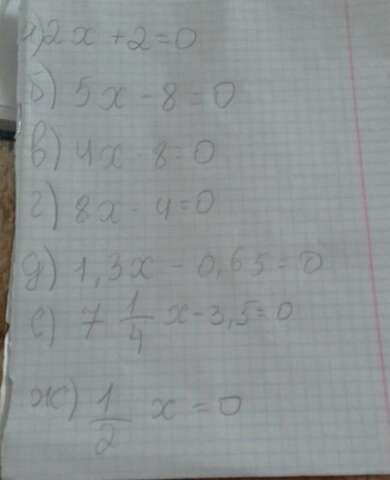 а) 2x + 2 = 0
б) 5x - 8 = 0
в) 4x - 8 = 0
г) 8x - 4 = 0
д) 1,3x - 0,65 = 0
е) 7 1/4 x - 3,5 = 0
ж) 1/2 x = 0